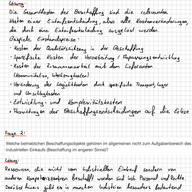 Lösung:
Die Gesamtkosten der Beschaffung sind die relevanten
Kosten einer Einkaufsentscheidung, also alle Kostenveränderungen,
die durch eine Einkaufsentscheidung ausgelöst werden.
Typische Einstandspreise:
- Kosten der Qualitätssicherung in der Beschaffung
- Spezifische Kosten der Veredelung / Anpassungsentwicklung
- Kosten der Zusammenarbeit mit dem Lieferanten
(Kommunikation, Werkzeugkosten)
- Veränderung der Logistikkosten durch spezifische Transportwege
und Umschlagskosten
- Entwicklungs- und Komplexitätskosten
- der Beschaffungsentscheidung auf die Erlöse
Frage 2:
Welche betrieblichen Beschaffungsobjekte gehören im allgemeinen nicht zum Aufgabenbereich des
industriellen Einkaufs (Beschaffung im engeren Sinne)?
Lösung:
Ressourcen, die nicht vom industriellen Einkauf sondern von
anderen Kompetenzzentren beschafft werden sind z.B. Personal und Rechte.
Darüber hinaus gibt es in manchen Industrien besonders bedeutende